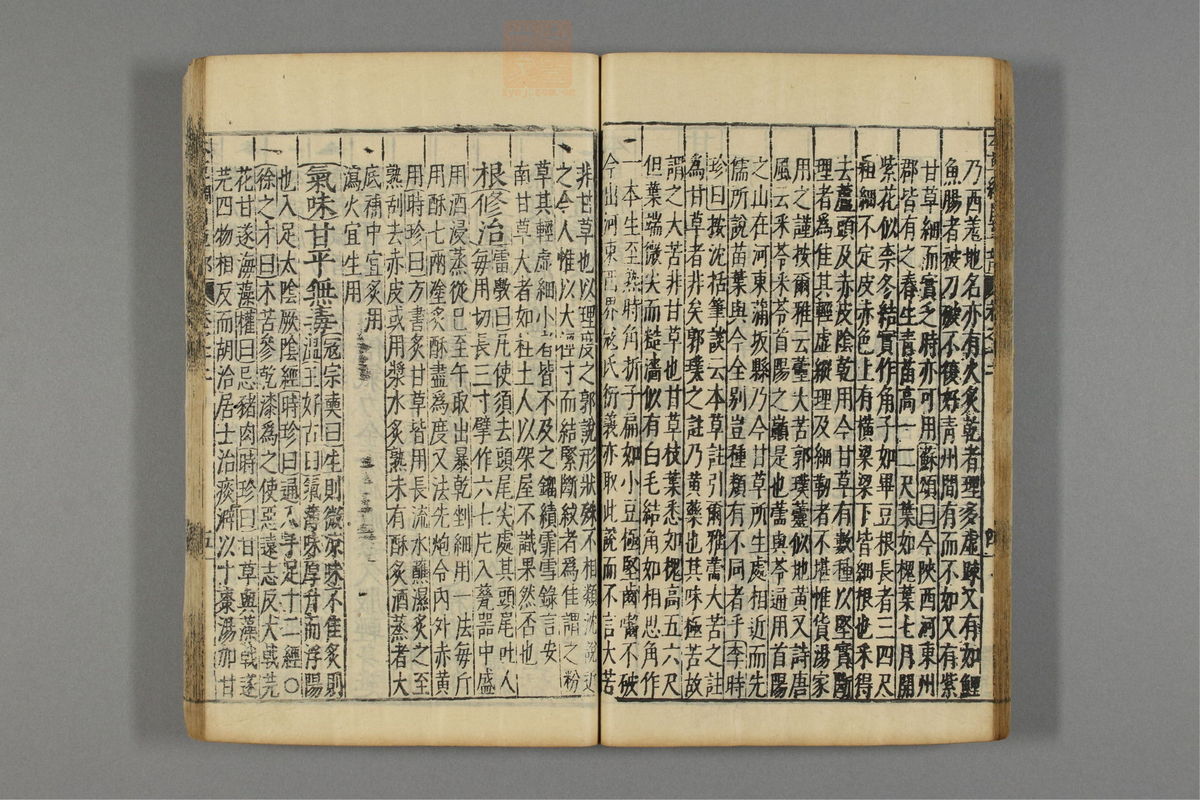 乃西羗地名亦有火炙乾者理多虛踈又有如鯉
魚腸者被刀破不復好青州間有而不如又有紫
甘草細而實乏時亦可用蘇頌曰今陜西河東州
郡皆有之春生青苗高一二尺葉如槐葉七月開
紫花似柰冬結實作角子如畢豆根長者三四尺
粗細不定皮赤色上有橫梁梁下皆細根也采得
去蘆頭及赤皮陰乾用今甘草有數種以堅實斷
理者爲佳其輕虛縱理及細韌者不堪惟貨湯家
用之謹按爾雅云蘦大苦郭璞蘦似地黃又詩唐
風云采苓采苓首陽之巔是也蘦與苓通用首陽
之山在河東蒲坂縣乃今甘草所生處相近而先
儒所說苗葉與今全別豈種類有不同者乎李時
珍曰按沈括筆談云本草註引爾雅蘦大苦之註
爲甘草者非矣郭璞之註乃黃藥也其味極苦故
謂之大苦非甘草也甘草枝葉悉如槐高五六尺
但葉端微尖而糙澀似有白毛結角如相思角作
一本生至熟時角折子扁如小豆極堅齒嚙不破
今出河東西界寇氏衍義亦取此說而不言大苦
非甘草也以理度之郭說形狀殊不相類沈說近
之今人惟以大徑寸而結緊斷紋者爲佳謂之粉
草其輕虛細小者皆不及之劉績霏雪錄言安
南甘草大者如柱土人以架屋不識果然否也
根修治雷斆曰凡使須去頭尾尖處其頭尾吐人
每用切長三寸擘作六七片入瓷器中盛
用酒浸蒸從巳至午取出暴乾剉細用一法每斤
用酥七兩塗炙酥盡爲度又法先炮令內外赤黃
用時珍曰方書炙甘草皆用長流水蘸濕炙之至
熟刮去赤皮或用漿水炙熟未有酥炙酒蒸者大
底補中宜炙用
瀉火宜生用
氣味甘平無毒寇宗奭曰生則微涼味不佳炙則
溫王好古曰氣薄味厚升而浮陽
也入足太陰厥陰經時珍曰通入手足十二經○
徐之才曰木苦參乾漆爲之使惡遠志反大戟芫
花甘遂海藻權曰忌豬肉時珍曰甘草與藻戟遂
芫四物相反而胡洽居士治痰澼以十棗湯加甘